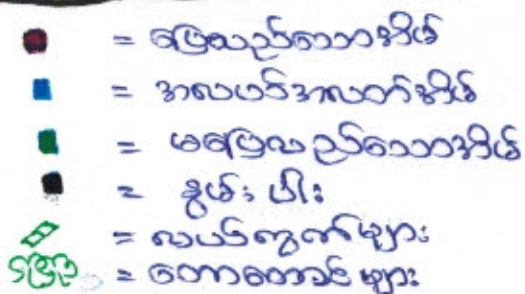 = ပြေလည်သောအိမ်
= အလယ်အလတ်အိမ်
= မပြေလည်သောအိမ်
= နွမ်းပါး
= လယ်ကွက်များ
= တောတောင်များ